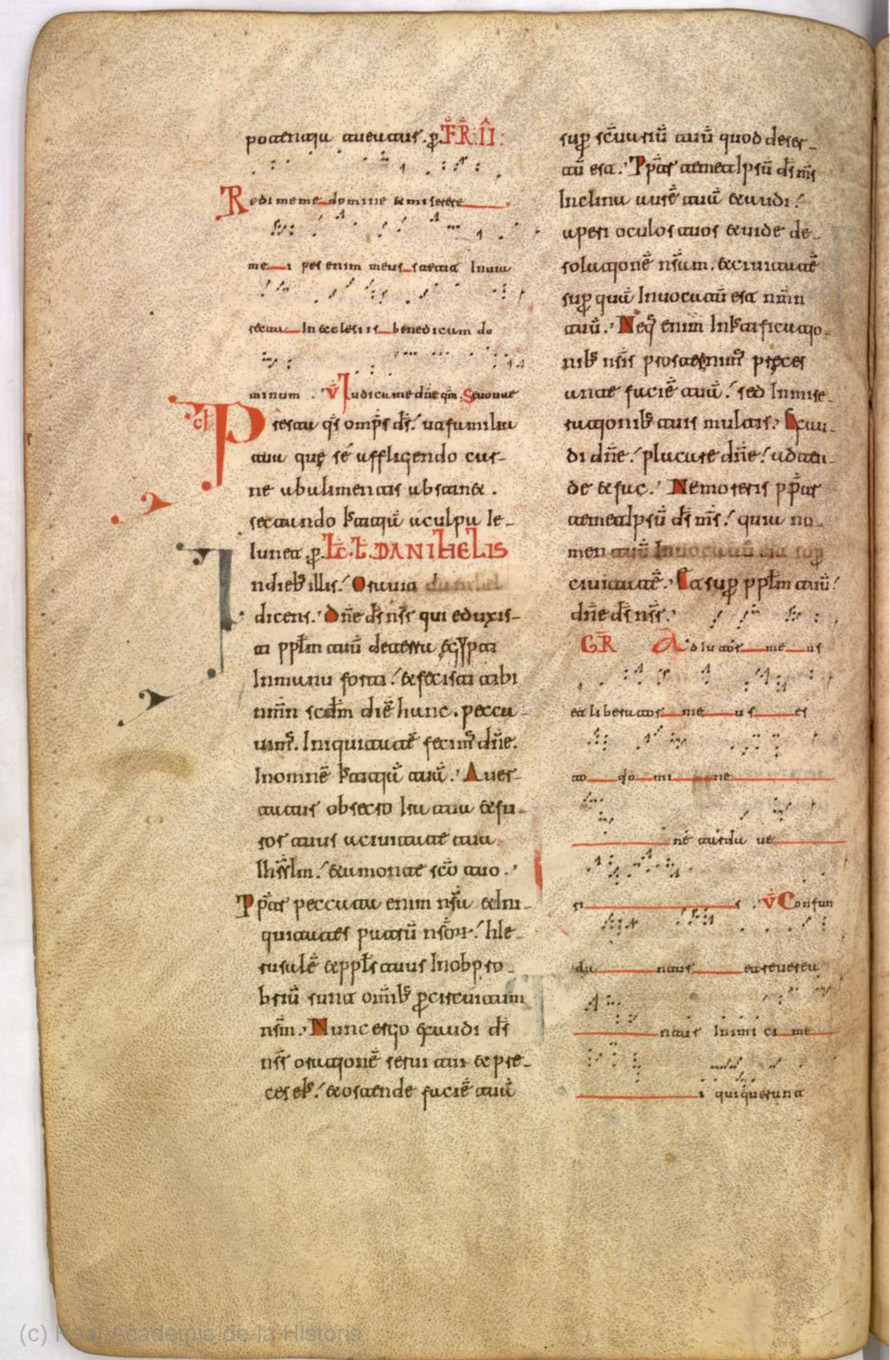 potentiā tueatur. p̄ FR̄ II:
Redime me domine & miserere
mei pes enim meus stetit In uia
recta In ecclesiis benedicam do
minum . V̄ Iudica me dn̄e qm̄. Seuouae
cł Presta qs̄ omp̄s ds̄. ut familia
tua quę sé affligendo car-
ne ab alimentis abstin& .
sectando Iustitiā a culpa Ie-
iunet p̄. Lc̄. L̄. DANIHELIS
In dieb; illis. Orauit daniel
dicens. Dn̄e ds̄ nr̄ qui eduxis-
ti pplm̄ tuū de terra ęgypti
In manu forti. & fecisti tibi
nm̄n scd̄m diē hunc. pecca-
uim;. Iniquitatē fecim; dn̄e.
In omnē Iustitiā tuā. Auer-
tatur obsecro Ira tua & fu-
ror tuus a ciuitate tua
Ihr̄lm. & a monte sc̄o tuo.
Ppt̄er peccata enim nr̄a & Ini-
quitates patrū nr̄or̄. hIe-
rusalē & ppls̄ tuus In obpro-
briū sunt omīb; p̄ circuitum
nr̄m. Nunc ergo exaudi ds̄
nr̄ orationē serui tui & pre-
ces ei;. & ostende faciē tuā
sup̄ sc̄uariū tuū quod deser-
tū est. Ppt̄er temetIpsū ds̄ ms̄
Inclina aurē tuā & audi.
aperi oculos tuos & uide de-
solationē nr̄am. & ciuitatē
sup̄ quā Inuocatū est nm̄n
tuū. Neq; enim In Iustificatio-
nib; nr̄is prosternim; preces
ante faciē tuā. sed In mise-
rationib; tuis multis. Exau-
di dn̄e. placare dn̄e. adten-
de & fac. Ne moreris ppt̄er
temetIpsū ds̄ ms̄. quia no-
men tuū Inuocatū est sup̄
ciuitatē. Et sup̄ pplm̄ tuū.
dn̄e ds̄ nr̄.
GR̄ Adiutor me us
et liberator me us es
to do mi ne
ne tarda ue
ris . V̄ Confun
da ntur et reuerea
ntur Inimi ci me
i qui querunt